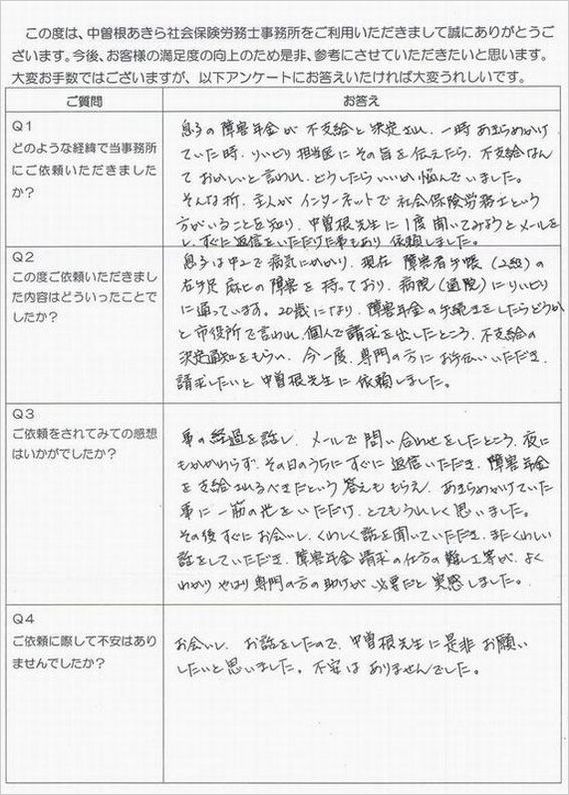 この度は、中曽根あきら社会保険労務士事務所をご利用いただきまして誠にありがとうご
ざいます。今後、お客様の満足度の向上のため是非、参考にさせていただきたいと思います。
大変お手数ではございますが、以下アンケートにお答えいたければ大変うれしいです。
ご質問
お答え
Q1
どのような経緯で当事務所
にご依頼いただきました
か?
息子の障害年金が不支給と決定され、一時あきらめかけ
ていた時、リハビリ担当医にその旨を伝えたら、不支給なん
ておかしいと言われ、どうしたらいいか悩んでいました。
そんな折、主人がインターネットで社会保険労務士という
方がいることを知り、中曽根先生に1度聞いてみようとメールを
し、すぐに返信をいただけた事もあり依頼しました。
Q2
この度ご依頼いただきまし
た内容はどういったことで
したか?
息子は中2で病気にかかり、現在 障害者手帳(2級)の
左手足麻ヒの障害を持っており、病院(通院)にリハビリ
に通っています。20歳になり、障害年金の手続きをしたらどうか
と市役所で言われ、個人で請求を出したところ、不支給の
決定通知をもらい、今一度、専門の方にお手伝いいただき、
請求したいと中曽根先生に依頼しました。
Q3
ご依頼をされてみての感想
はいかがでしたか?
事の経過を話し、メールで問い合わせをしたところ、夜に
もかかわらず、その日のうちにすぐに返信いただき、障害年金
を支給されるべきだという答えももらえ、あきらめかけていた
事に一筋の光をいただけ、とてもうれしく思いました。
その後すぐにお会いし、くわしく話を聞いていただき、またくわしい
話をしていただき、障害年金請求の仕方の難しさ等が、よく
わかり やはり専門の方の助けが必要だと実感しました。
Q4
ご依頼に際して不安はあり
ませんでしたか?
お会いし、お話をしたので、中曽根先生に是非お願い
したいと思いました。不安はありませんでした。